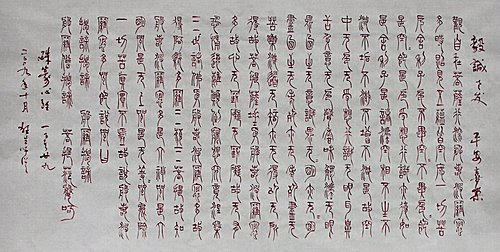 毅誠之友 平安喜樂
觀自在菩薩行深般若波羅蜜
多時照見五蘊皆空度一切苦
厄舍利子色不異空空不異色色即
是空空即是色受想行識亦復如
是舍利子是諸法空相不生不
滅不垢不淨不增不減是故空
中无色无受想行識无眼耳鼻
舌身意无色聲香味觸法无眼
界乃至无意識界无无明亦无
无明盡乃至无老死亦无老死
盡无苦集滅道无智亦无得以无所
得故菩提薩埵依般若波羅蜜
多故心无罣礙无罣礙故无有
恐怖遠離顛倒夢想究竟涅槃
三世諸佛依般若波羅蜜多故
得阿耨多羅三藐三菩提故知
般若波羅蜜多是大神咒是大
明咒是无上咒是无等等咒能除
一切苦真實不虛故說般若波
羅蜜多咒即說咒曰
揭諦揭諦 波羅揭諦
波羅僧揭諦 菩提薩婆訶
硃書心經 一百廿九
二〇〇九年十月